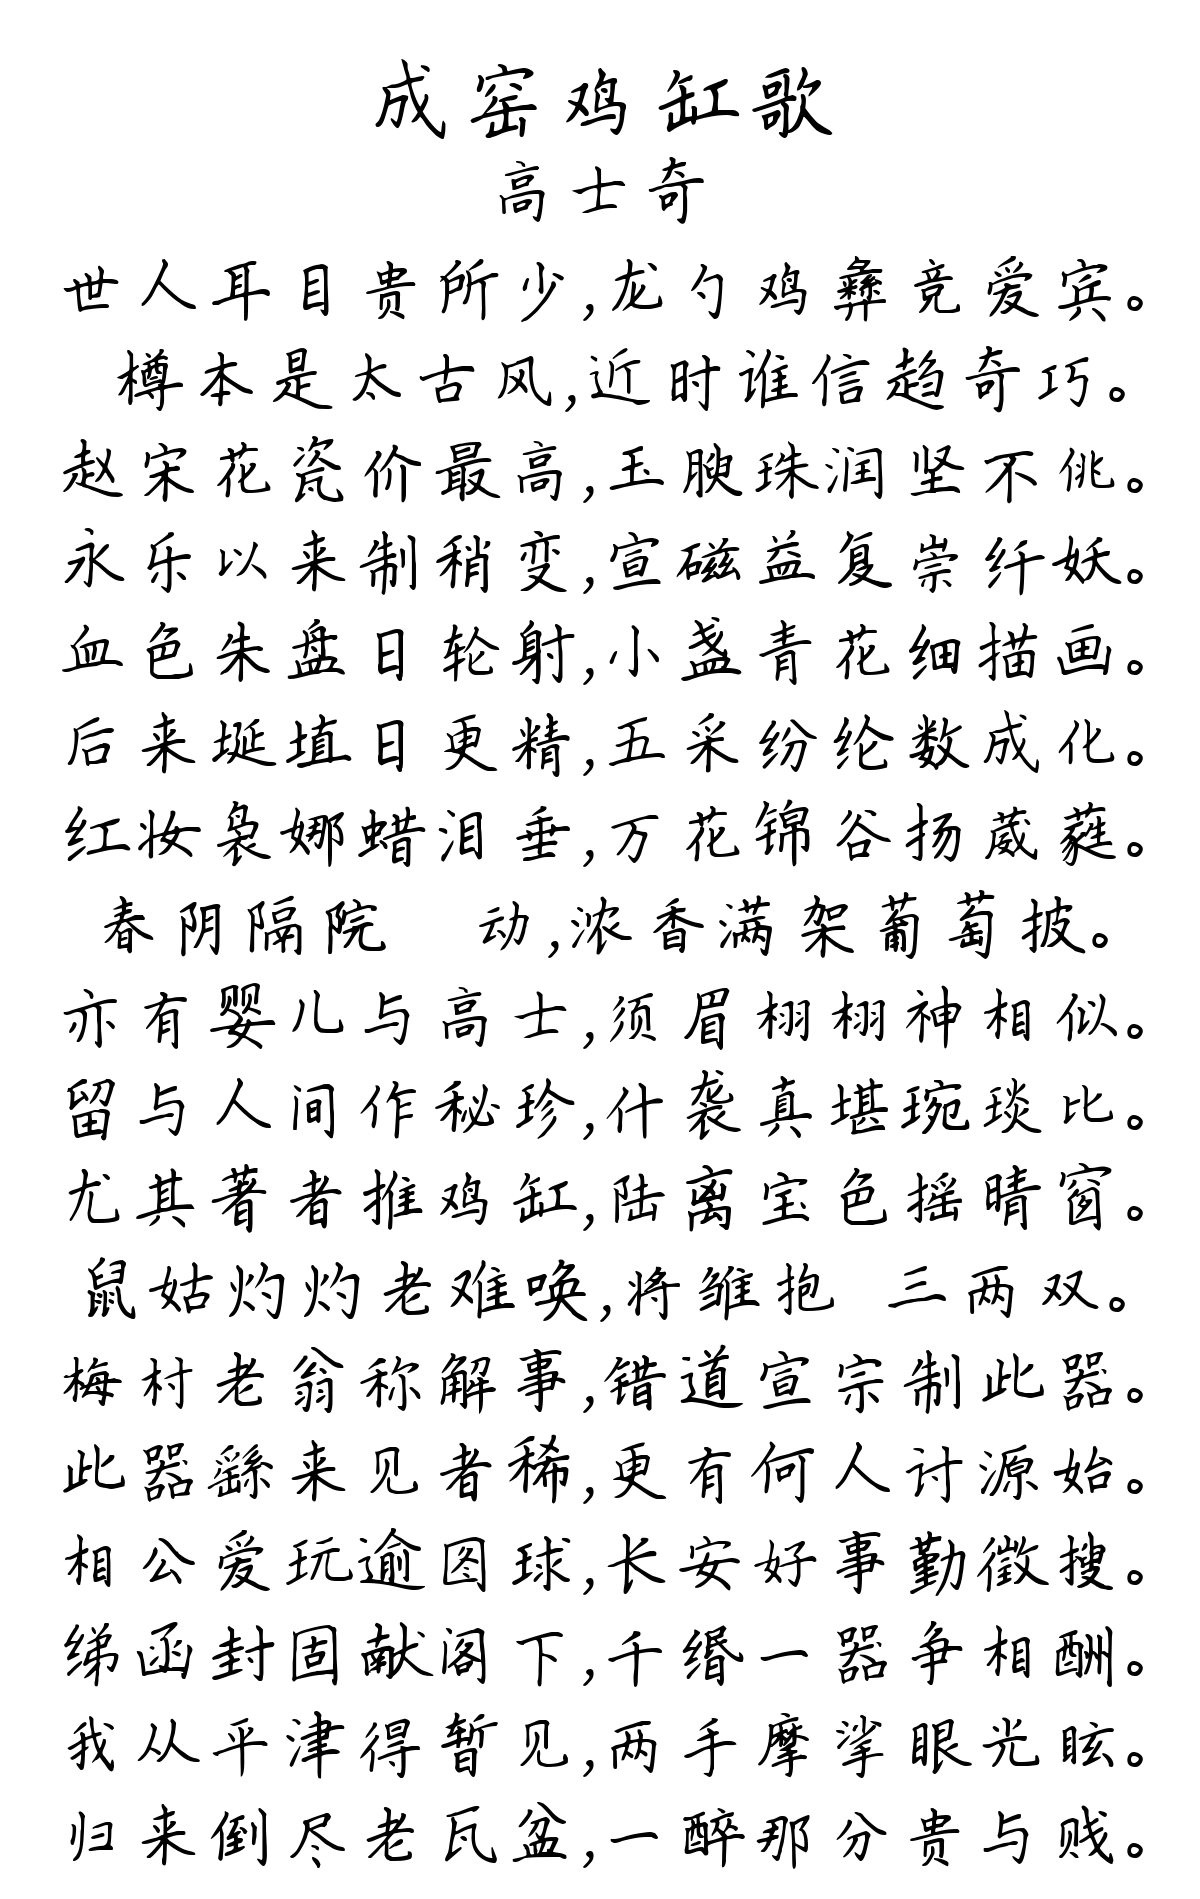 成窑鸡缸歌
高士奇
世人耳目贵所少,龙勺鸡彝竞爱宾。
樽本是太古风,近时谁信趋奇巧。
赵宋花瓷价最高,玉腴珠润坚不佻。
永乐以来制稍变,宣磁益复崇纤妖。
血色朱盘日轮射,小盏青花细描画。
后来埏埴日更精,五采纷纶数成化。
红妆袅娜蜡泪垂,万花锦谷扬葳蕤。
春阴隔院 动,浓香满架葡萄披。
亦有婴儿与高士,须眉栩栩神相似。
留与人间作秘珍,什袭真堪琬琰比。
尤其著者推鸡缸,陆离宝色摇晴窗。
鼠姑灼灼老难唤,将雏抱 三两双。
梅村老翁称解事,错道宣宗制此器。
此器繇来见者稀,更有何人讨源始。
相公爱玩逾图球,长安好事勤徵搜。
绨函封固献阁下,千缗一器争相酬。
我从平津得暂见,两手摩挲眼光眩。
归来倒尽老瓦盆,一醉那分贵与贱。